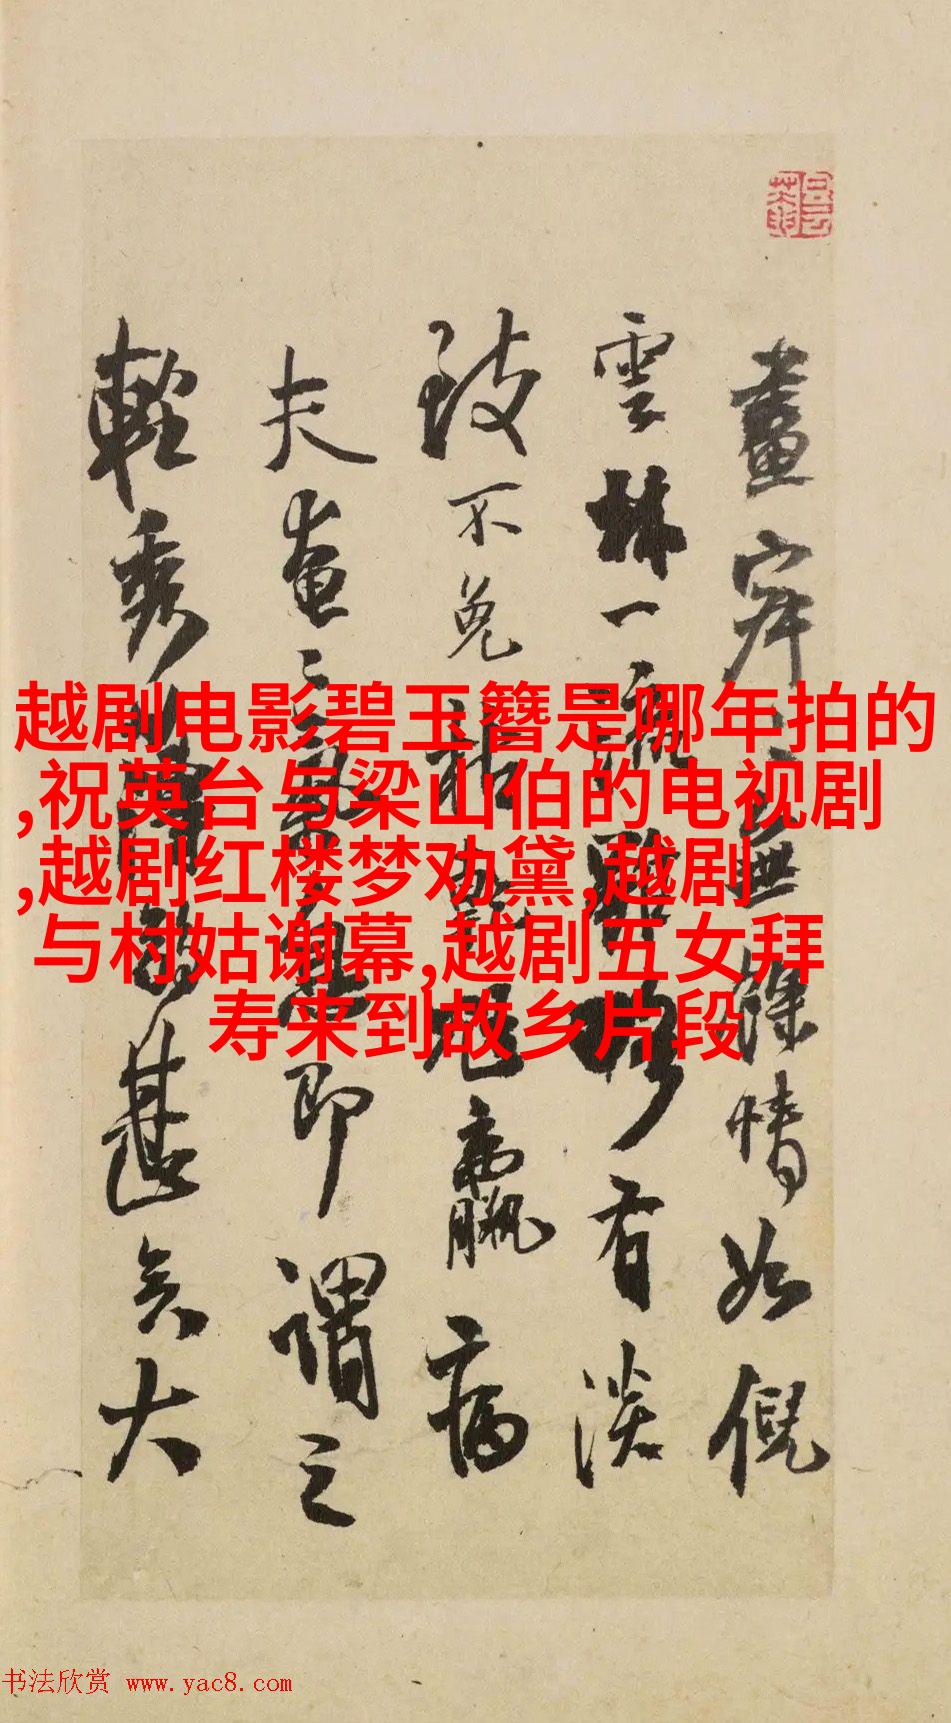 越剧电影碧玉簪是哪年拍的
,祝英台与梁山伯的电视剧
,越剧红楼梦劝黛,越剧
与村姑谢幕,越剧五女拜
寿来到故乡片段
畫家
無餘情如倪
雲林一
有淡
致不免
羸病
夫畫
即謂之
輕秀
甚矣大
书法欣赏 www.yac8.com